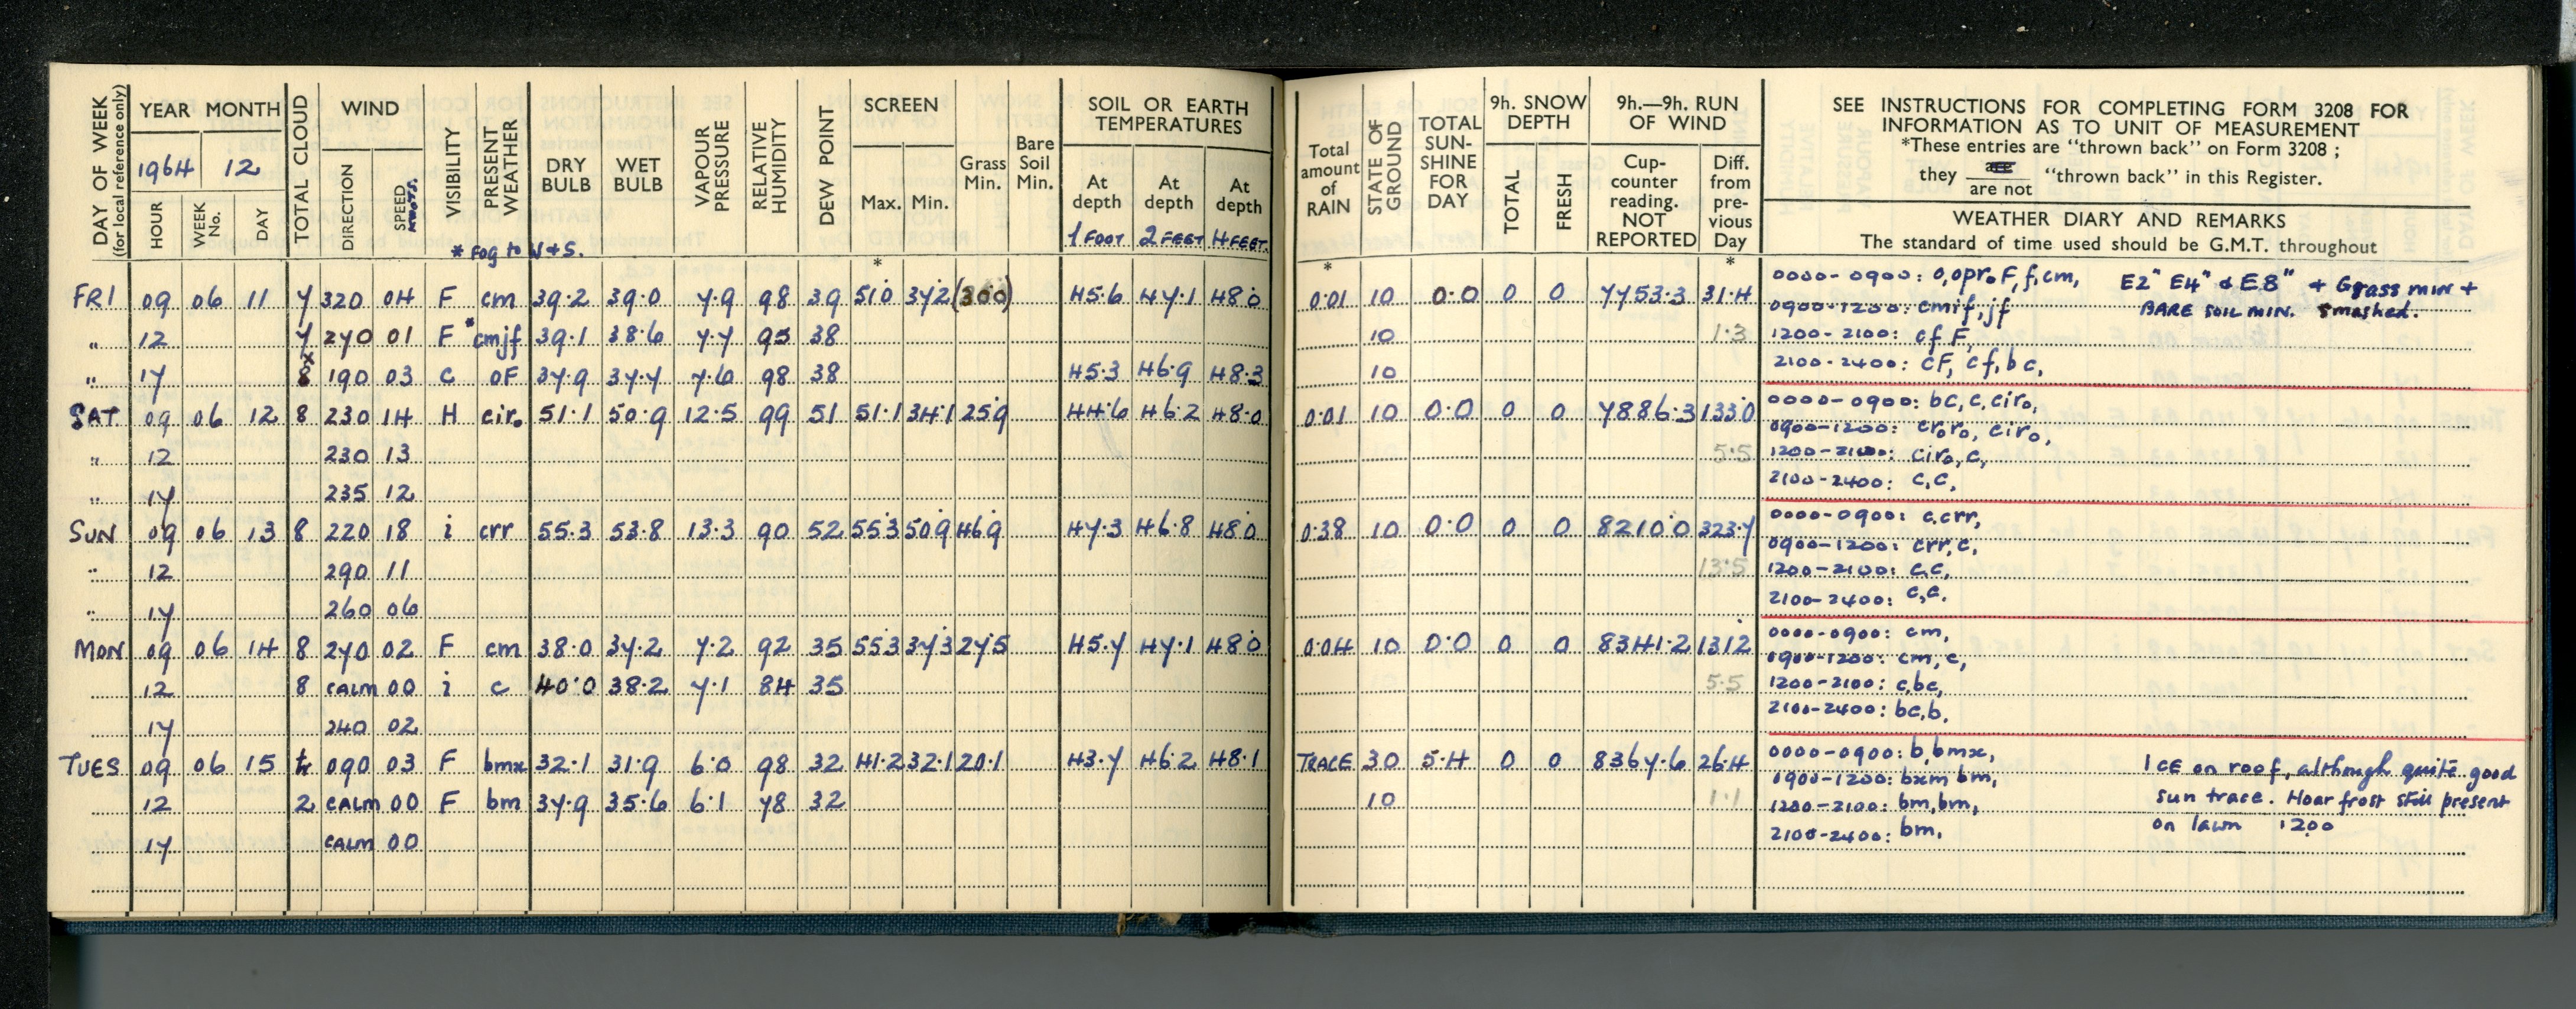 DAY OF WEEK (for local reference only) YEAR MONTH TOTAL CLOUD WIND VISIBILITY PRESENT WEATHER DRY BULB WET BULB VAPOUR PRESSURE RELATIVE HUMIDITY DEW POINT SCREEN Grass Min. Bare Soil Min. SOIL OR EARTH TEMPERATURES
1964 12
HOUR WEEK No. DAY DIRECTION SPEED KNOTS. Max. Min. At depth At depth At depth
1 FOOT 2 FEET 4 FEET.
* Fog to W + S.
*
FRI 09 06 11 7 320 04 F cm 39.2 39.0 7.9 98 39 51.0 37.2 (30.0) 45.6 47.1 48.0
" 12 7 270 01 F * cmjf 39.1 38.6 7.7 95 38
" 17 8 190 03 C OF 37.9 37.7 7.6 98 38 45.3 46.9 48.3
SAT 09 06 12 8 230 14 H cir₀ 51.1 50.9 12.5 99 51 51.1 34.1 25.9 44.6 46.2 48.0
" 12 230 13
" 17 235 12
SUN 09 06 13 8 220 18 i crr 55.3 53.8 13.3 90 52 55.3 50.9 46.9 47.3 46.8 48.0
" 12 290 11
" 17 260 06
MON 09 06 14 8 270 02 F cm 38.0 37.2 7.2 92 35 55.3 37.3 27.5 45.7 47.1 48.0
12 8 CALM 00 i c 40.0 38.2 7.1 84 35
17 240 02
TUES 09 06 15 tr 090 03 F bmx 32.1 31.9 6.0 98 32 41.2 32.1 20.1 43.7 46.2 48.1
12 2 CALM 00 F bm 37.9 35.6 6.1 78 32
17 CALM 00
Total amount of RAIN STATE OF GROUND TOTAL SUN-SHINE FOR DAY 9h. SNOW DEPTH 9h.—9h. RUN OF WIND
TOTAL FRESH Cup-counter reading. NOT REPORTED Diff. from pre-vious Day
SEE INSTRUCTIONS FOR COMPLETING FORM 3208 FOR
INFORMATION AS TO UNIT OF MEASUREMENT
*These entries are "thrown back" on Form 3208 ;
they are / are not "thrown back" in this Register.
WEATHER DIARY AND REMARKS
The standard of time used should be G.M.T. throughout
* *
0.01 10 0.0 0 0 7753.3 31.4
10 1.3
10
0000-0900: o,opr₀F,f,cm, E2" E4" & E8" + Grass min +
0900-1200: cmif,jf BARE SOIL MIN. smashed.
1200-2100: cfF,
2100-2400: cF, cf, bc,
0.01 10 0.0 0 0 7886.3 133.0
5.5
0000-0900: bc, c, cir₀,
0900-1200: cr₀r₀, cir₀,
1200-2100: cir₀, c,
2100-2400: c,c,
0.38 10 0.0 0 0 8210.0 323.7
13.5
0000-0900: c,crr,
0900-1200: crr,c,
1200-2100: c,c,
2100-2400: c,c.
0.04 10 0.0 0 0 8341.2 131.2
5.5
0000-0900: cm,
0900-1200: cm,c,
1200-2100: c,bc,
2100-2400: bc,b.
TRACE 30 5.4 0 0 8367.6 26.4
10 1.1
0000-0900: b,bmx,
0900-1200: bxm bm, ICE on roof, although quite good
1200-2100: bm,bm, sun trace. Hoar frost still present
2100-2400: bm, on lawn 1200